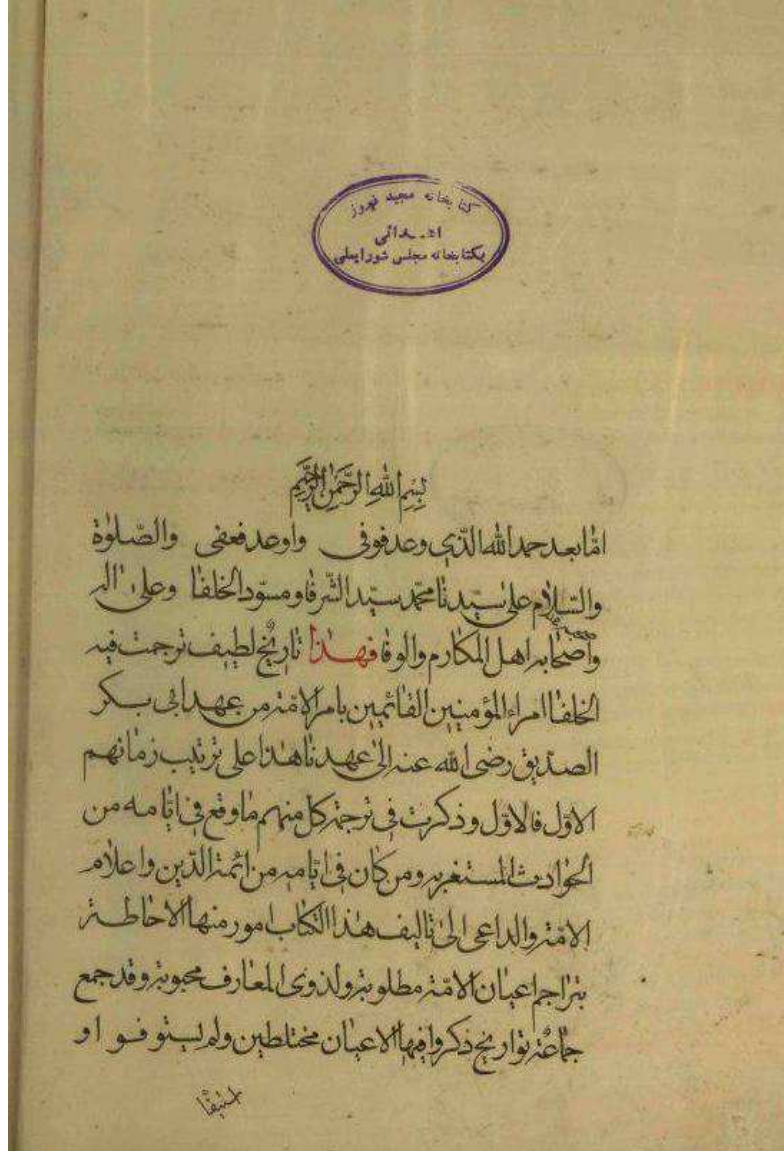 كتابخانه مجيد فيروز
اهدائى
بكتابخانه مجلس شورايملى
بِسْمِ اللهِ الرَّحْمٰنِ الرَّحِيْمِ
امّا بعد حمد الله الّذى وعد فوفى واوعد فعفى والصّلوٰة
والسّلام على سيّدنا محمّد سيّد الشّرفا ومسوّد الخلفا وعلى اله
واصحابه اهل المكارم والوفا فهذا تاريخ لطيف ترجمت فيه
الخلفا امراء المؤمنين القائمين بامر الامّة من عهد ابى بكر
الصدّيق رضى الله عنه الى عهدنا هذا على ترتيب زمانهم
الاوّل فالاوّل وذكرت فى ترجمة كل منهم ما وقع فى ايّامه من
الحوادث المستغربه ومن كان فى ايّامه من ائمة الدّين واعلام
الامّة والداعى الى تاليف هذا الكتاب امور منها الاحاطة
بتراجم اعيان الامّة مطلوبة ولذوى المعارف محبوبة وقد جمع
جماعة تواريخ ذكروا فيها الاعيان مختلطين ولم يستوفوا و
استيفا